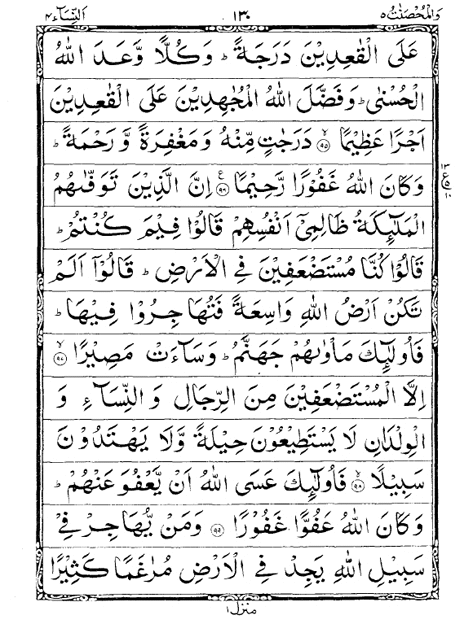 وَالْمُحْصَنٰتُ ٥ ١٣٠ اَلنِّسَآء ٤
عَلَى الْقٰعِدِيْنَ دَرَجَةً ؕ وَكُلًّا وَّعَدَ اللّٰهُ
الْحُسْنٰى ؕ وَفَضَّلَ اللّٰهُ الْمُجٰهِدِيْنَ عَلَى الْقٰعِدِيْنَ
اَجْرًا عَظِيْمًا ۙ۝٩٥ دَرَجٰتٍ مِّنْهُ وَمَغْفِرَةً وَّرَحْمَةً ؕ
وَكَانَ اللّٰهُ غَفُوْرًا رَّحِيْمًا ۧ۝٩٦ اِنَّ الَّذِيْنَ تَوَفّٰىهُمُ
الْمَلٰٓئِكَةُ ظَالِمِىْۤ اَنْفُسِهِمْ قَالُوْا فِيْمَ كُنْتُمْ ؕ
قَالُوْا كُنَّا مُسْتَضْعَفِيْنَ فِى الْاَرْضِ ؕ قَالُوْۤا اَلَمْ
تَكُنْ اَرْضُ اللّٰهِ وَاسِعَةً فَتُهَاجِرُوْا فِيْهَا ؕ
فَاُولٰٓئِكَ مَاْوٰىهُمْ جَهَنَّمُ ؕ وَسَآءَتْ مَصِيْرًا ۙ۝٩٧
اِلَّا الْمُسْتَضْعَفِيْنَ مِنَ الرِّجَالِ وَالنِّسَآءِ وَ
الْوِلْدَانِ لَا يَسْتَطِيْعُوْنَ حِيْلَةً وَّلَا يَهْتَدُوْنَ
سَبِيْلًا ۙ۝٩٨ فَاُولٰٓئِكَ عَسَى اللّٰهُ اَنْ يَّعْفُوَ عَنْهُمْ ؕ
وَكَانَ اللّٰهُ عَفُوًّا غَفُوْرًا ۝٩٩ وَمَنْ يُّهَاجِرْ فِىْ
سَبِيْلِ اللّٰهِ يَجِدْ فِى الْاَرْضِ مُرٰغَمًا كَثِيْرًا
منزل ١